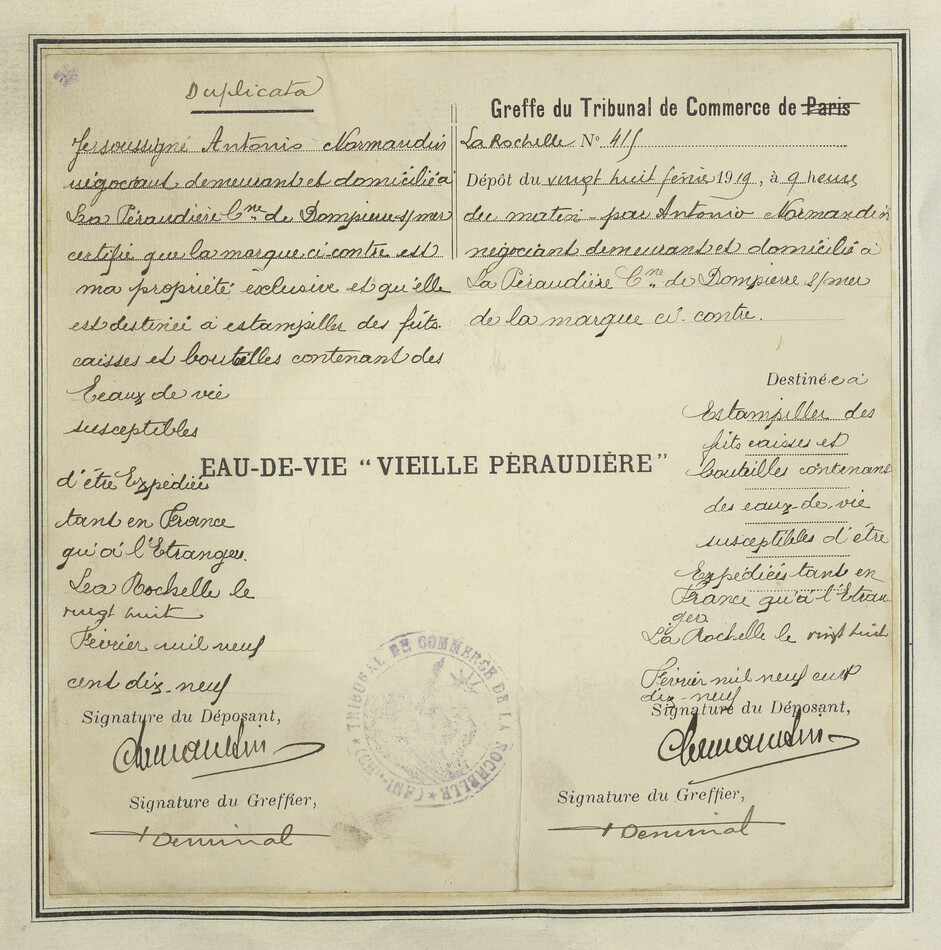 Duplicata
Je soussigné Antonio Normandin
négociant demeurant et domicilié à
La Péraudière Cne de Dompierre s/mer
certifie que la marque ci contre est
ma propriété exclusive et qu'elle
est destinée à estampiller des fûts
caisses et bouteilles contenant des
Eaux de vie
susceptibles
d'être Expédiées
tant en France
qu'à l'Etranger.
La Rochelle le
vingt huit
Février mil neuf
cent dix-neuf
Signature du Déposant,
Signature du Greffier,
EAU-DE-VIE “VIEILLE PÉRAUDIÈRE”
Greffe du Tribunal de Commerce de Paris
La Rochelle N° 415
Dépôt du vingt huit février 1919, à 9 heures
du matin - par Antonio Normandin
négociant demeurant et domicilié à
La Péraudière Cne de Dompierre s/mer
de la marque ci-contre.
Destinée à
Estampiller des
fûts caisses et
bouteilles contenant
des eaux-de-vie
susceptibles d'être
Expédiées tant en
France qu'à l'Etran
ger
La Rochelle le vingt huit
Février mil neuf cent
dix-neuf
Signature du Déposant,
Signature du Greffier,
TRIBUNAL DE COMMERCE DE LA ROCHELLE